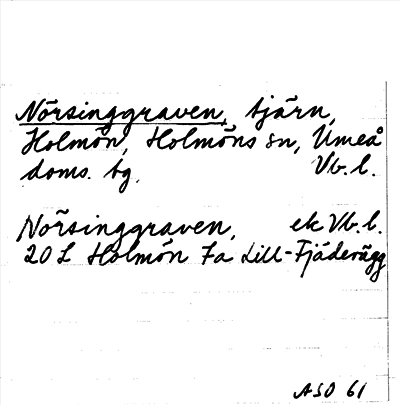 Nörsinggraven, tjärn,
Holmön, Holmöns sn, Umeå
doms. tg. Vb. l.
Nörsinggraven, ek Vb. l.
20 L Holmön 7a Lill-Fjäderägg
ASO 61